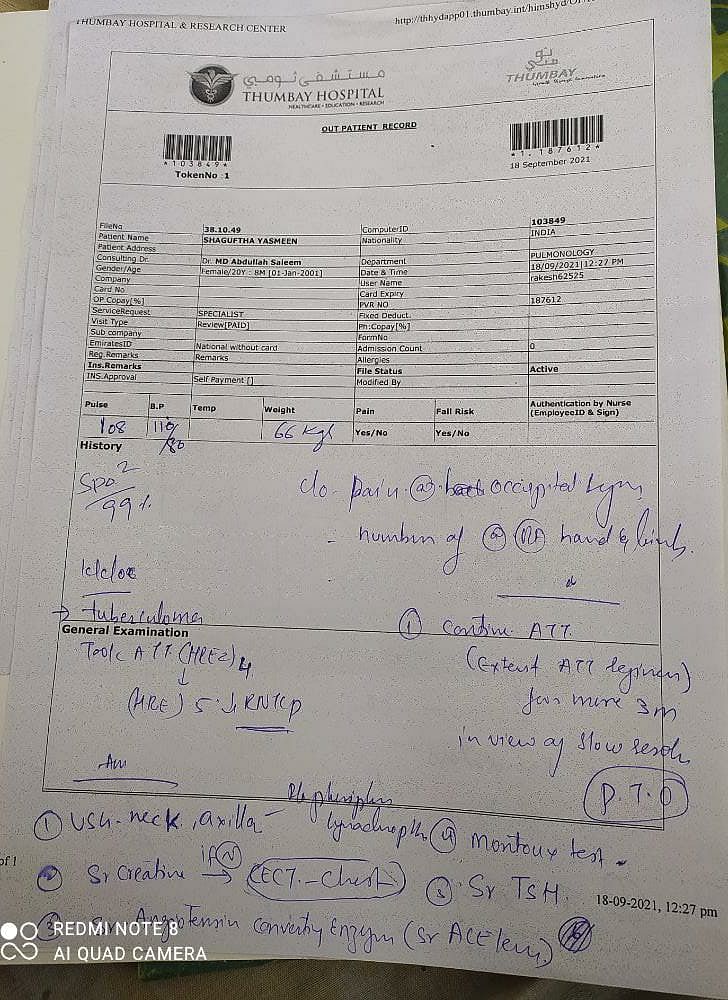 THUMBAY HOSPITAL & RESEARCH CENTER
http://thhydapp01.thumbay.int/himshyd/
مستشفى ثومبي
THUMBAY HOSPITAL
HEALTHCARE • EDUCATION • RESEARCH
THUMBAY
OUT PATIENT RECORD
*103849*
TokenNo :1
*1.187612*
18 September 2021
FileNo 38.10.49 ComputerID 103849
Patient Name SHAGUFTHA YASMEEN Nationality INDIA
Patient Address
Consulting Dr. Dr. MD Abdullah Saleem Department PULMONOLOGY
Gender/Age Female/20Y : 8M [01-Jan-2001] Date & Time 18/09/2021|12:27 PM
Company User Name rakesh62525
Card No Card Expiry
OP.Copay[%] PVR NO 187612
ServiceRequest SPECIALIST Fixed Deduct.
Visit Type Review[PAID] Ph:Copay[%]
Sub company FormNo
EmiratesID National without card Admission Count 0
Reg.Remarks Remarks Allergies
Ins.Remarks File Status Active
INS.Approval Self Payment [] Modified By
Pulse B.P Temp Weight Pain Fall Risk Authentication by Nurse (EmployeeID & Sign)
108 110/80 66 Kgs Yes/No Yes/No
History
SpO2 99%
c/o Pain
hand &
k/c/o
→ tuberculoma
General Examination
① Continue ATT
Took ATT (HREZ) 4
(Extent ATT regimen)
↓
(HRE) 5
for more 3m
in view of slow
P.T.O
① USG-neck, axilla
④ Montoux test
Sr Creatine if Ⓝ → CECT-Chest
⑤ Sr. TSH.
18-09-2021, 12:27 pm
of 1
③ Sr Angiotensin Enzym (Sr ACE
REDMI NOTE 8
AI QUAD CAMERA